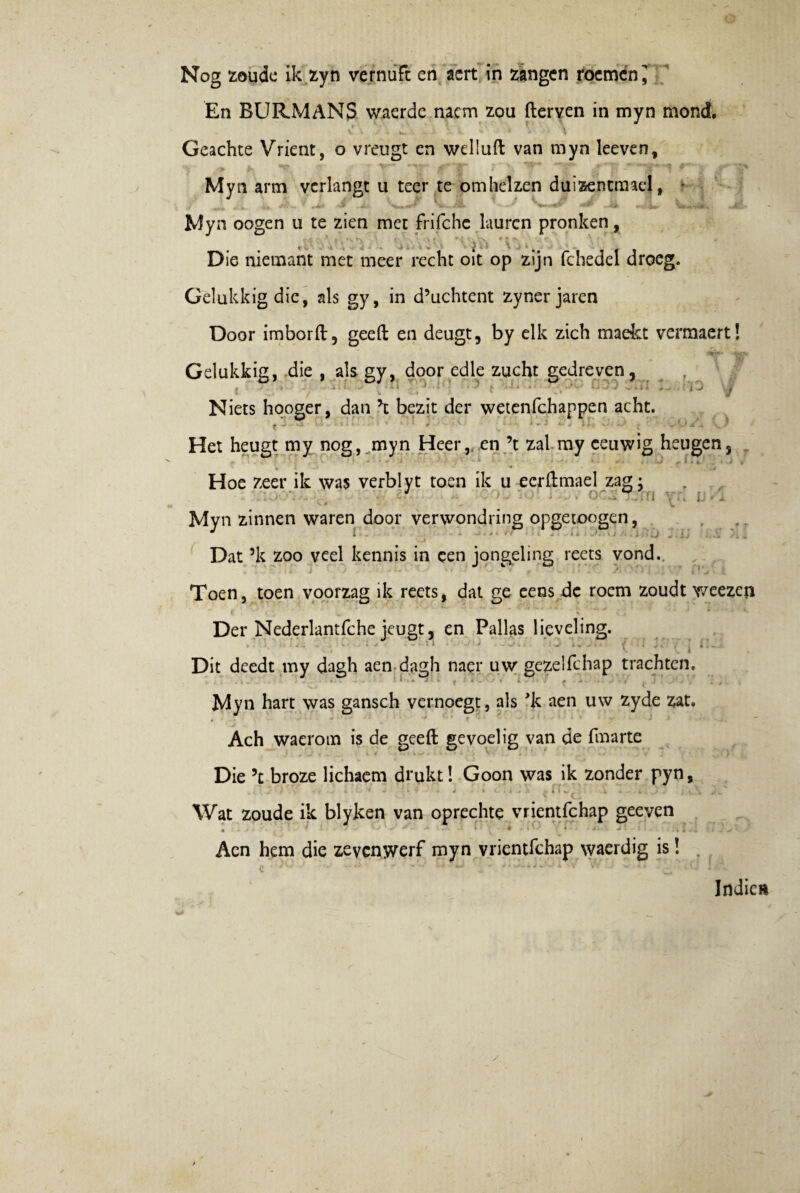 Nog zoude ik zyn vernuft en aert in zangen roemen,
En BURMANS waerde naem zou ſterven in myn mond.
Geachte Vrient, o vreugt en welluſt van myn leeven,
Myn arm verlangt u teer te omhelzen duizentmael,
Myn oogen u te zien met friſche lauren pronken,
Die niemant met meer recht oit op zijn ſchedel droeg.
Gelukkig die, als gy, in d’uchtent zyner jaren
Door imborſt, geeſt en deugt, by elk zich maekt vermaert!
Gelukkig, die, als gy, door edle zucht gedreven,
Niets hooger, dan ’t bezit der wetenſchappen acht.
Het heugt my nog, myn Heer, en ’t zal my eeuwig heugen,
Hoe zeer ik was verblyt toen ik u eerſtmael zag;
Myn zinnen waren door verwondring opgetoogen,
Dat ’k zoo veel kennis in een jongeling reets vond.
Toen, toen voorzag ik reets, dat ge eens de roem zoudt weezen
Der Nederlantſche jeugt, en Pallas lieveling.
Dit deedt my dagh aen dagh naer uw gezelſchap trachten.
Myn hart was gansch vernoegt, als ’k aen uw zyde zat.
Ach waerom is de geeſt gevoelig van de ſmarte
Die ’t broze lichaem drukt! Goon was ik zonder pyn,
Wat zoude ik blyken van oprechte vrientſchap geeven
Aen hem die zevenwerf myn vrientſchap waerdig is!
Indien